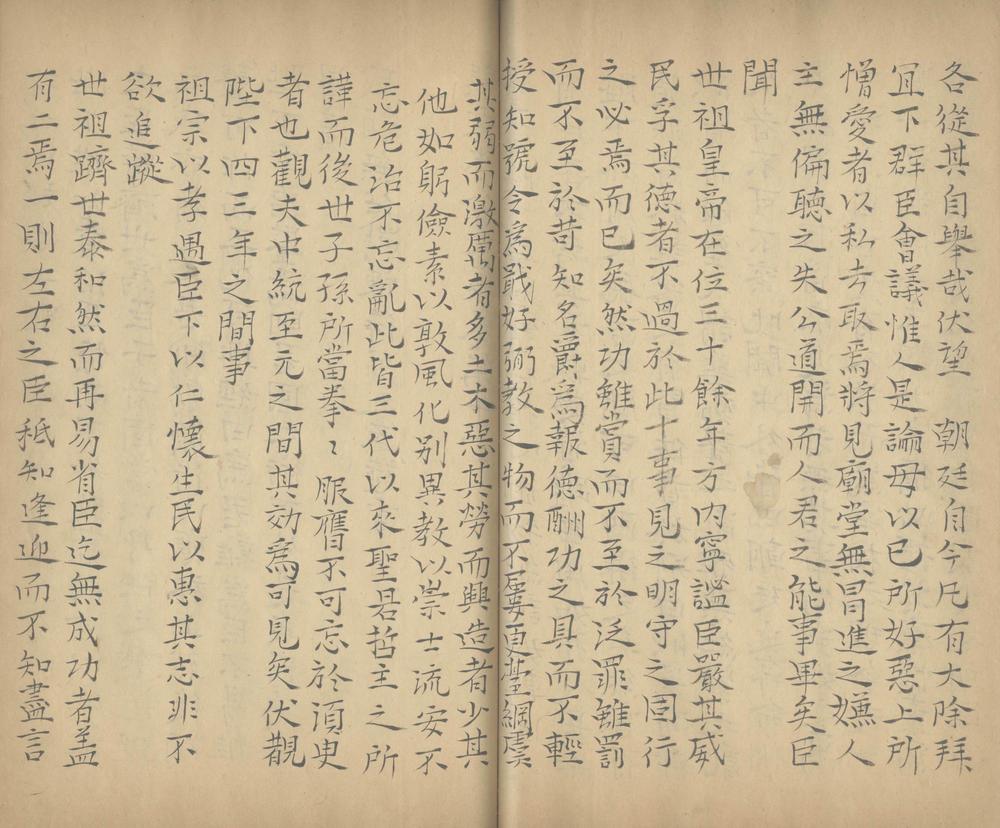 各從其自舉哉伏望　朝廷自今凡有大除拜
冝下群臣會議惟人是論毋以已所好惡上所
憎愛者以私去取焉將見廟堂無冒進之嫌人
主無偏聽之失公道開而人君之能事畢矣臣
聞
世祖皇帝在位三十餘年方内寜謐臣嚴其威
民孚其德者不過於此十事見之明守之固行
之必焉而已矣然功雖賞而不至於泛罪雖罰
而不至於苛知名爵爲報德酬功之具而不輕
授知號令爲戢奸弼教之物而不屢更臺綱虞
其弱而激厲者多土木惡其勞而興造者少其
他如躬儉素以敦風化别異教以崇士流安不
忘危治不忘亂此皆三代以來聖君哲主之所
諱而後世子孫所當拳〻服膺不可忘於湏臾
者也觀夫中統至元之間其効爲可見矣伏覩
陛下四三年之間事
祖宗以孝遇臣下以仁懷生民以惠其志非不
欲追蹤
世祖躋世泰和然而再易省臣迄無成功者盖
有二焉一則左右之臣秪知逢迎而不知盡言